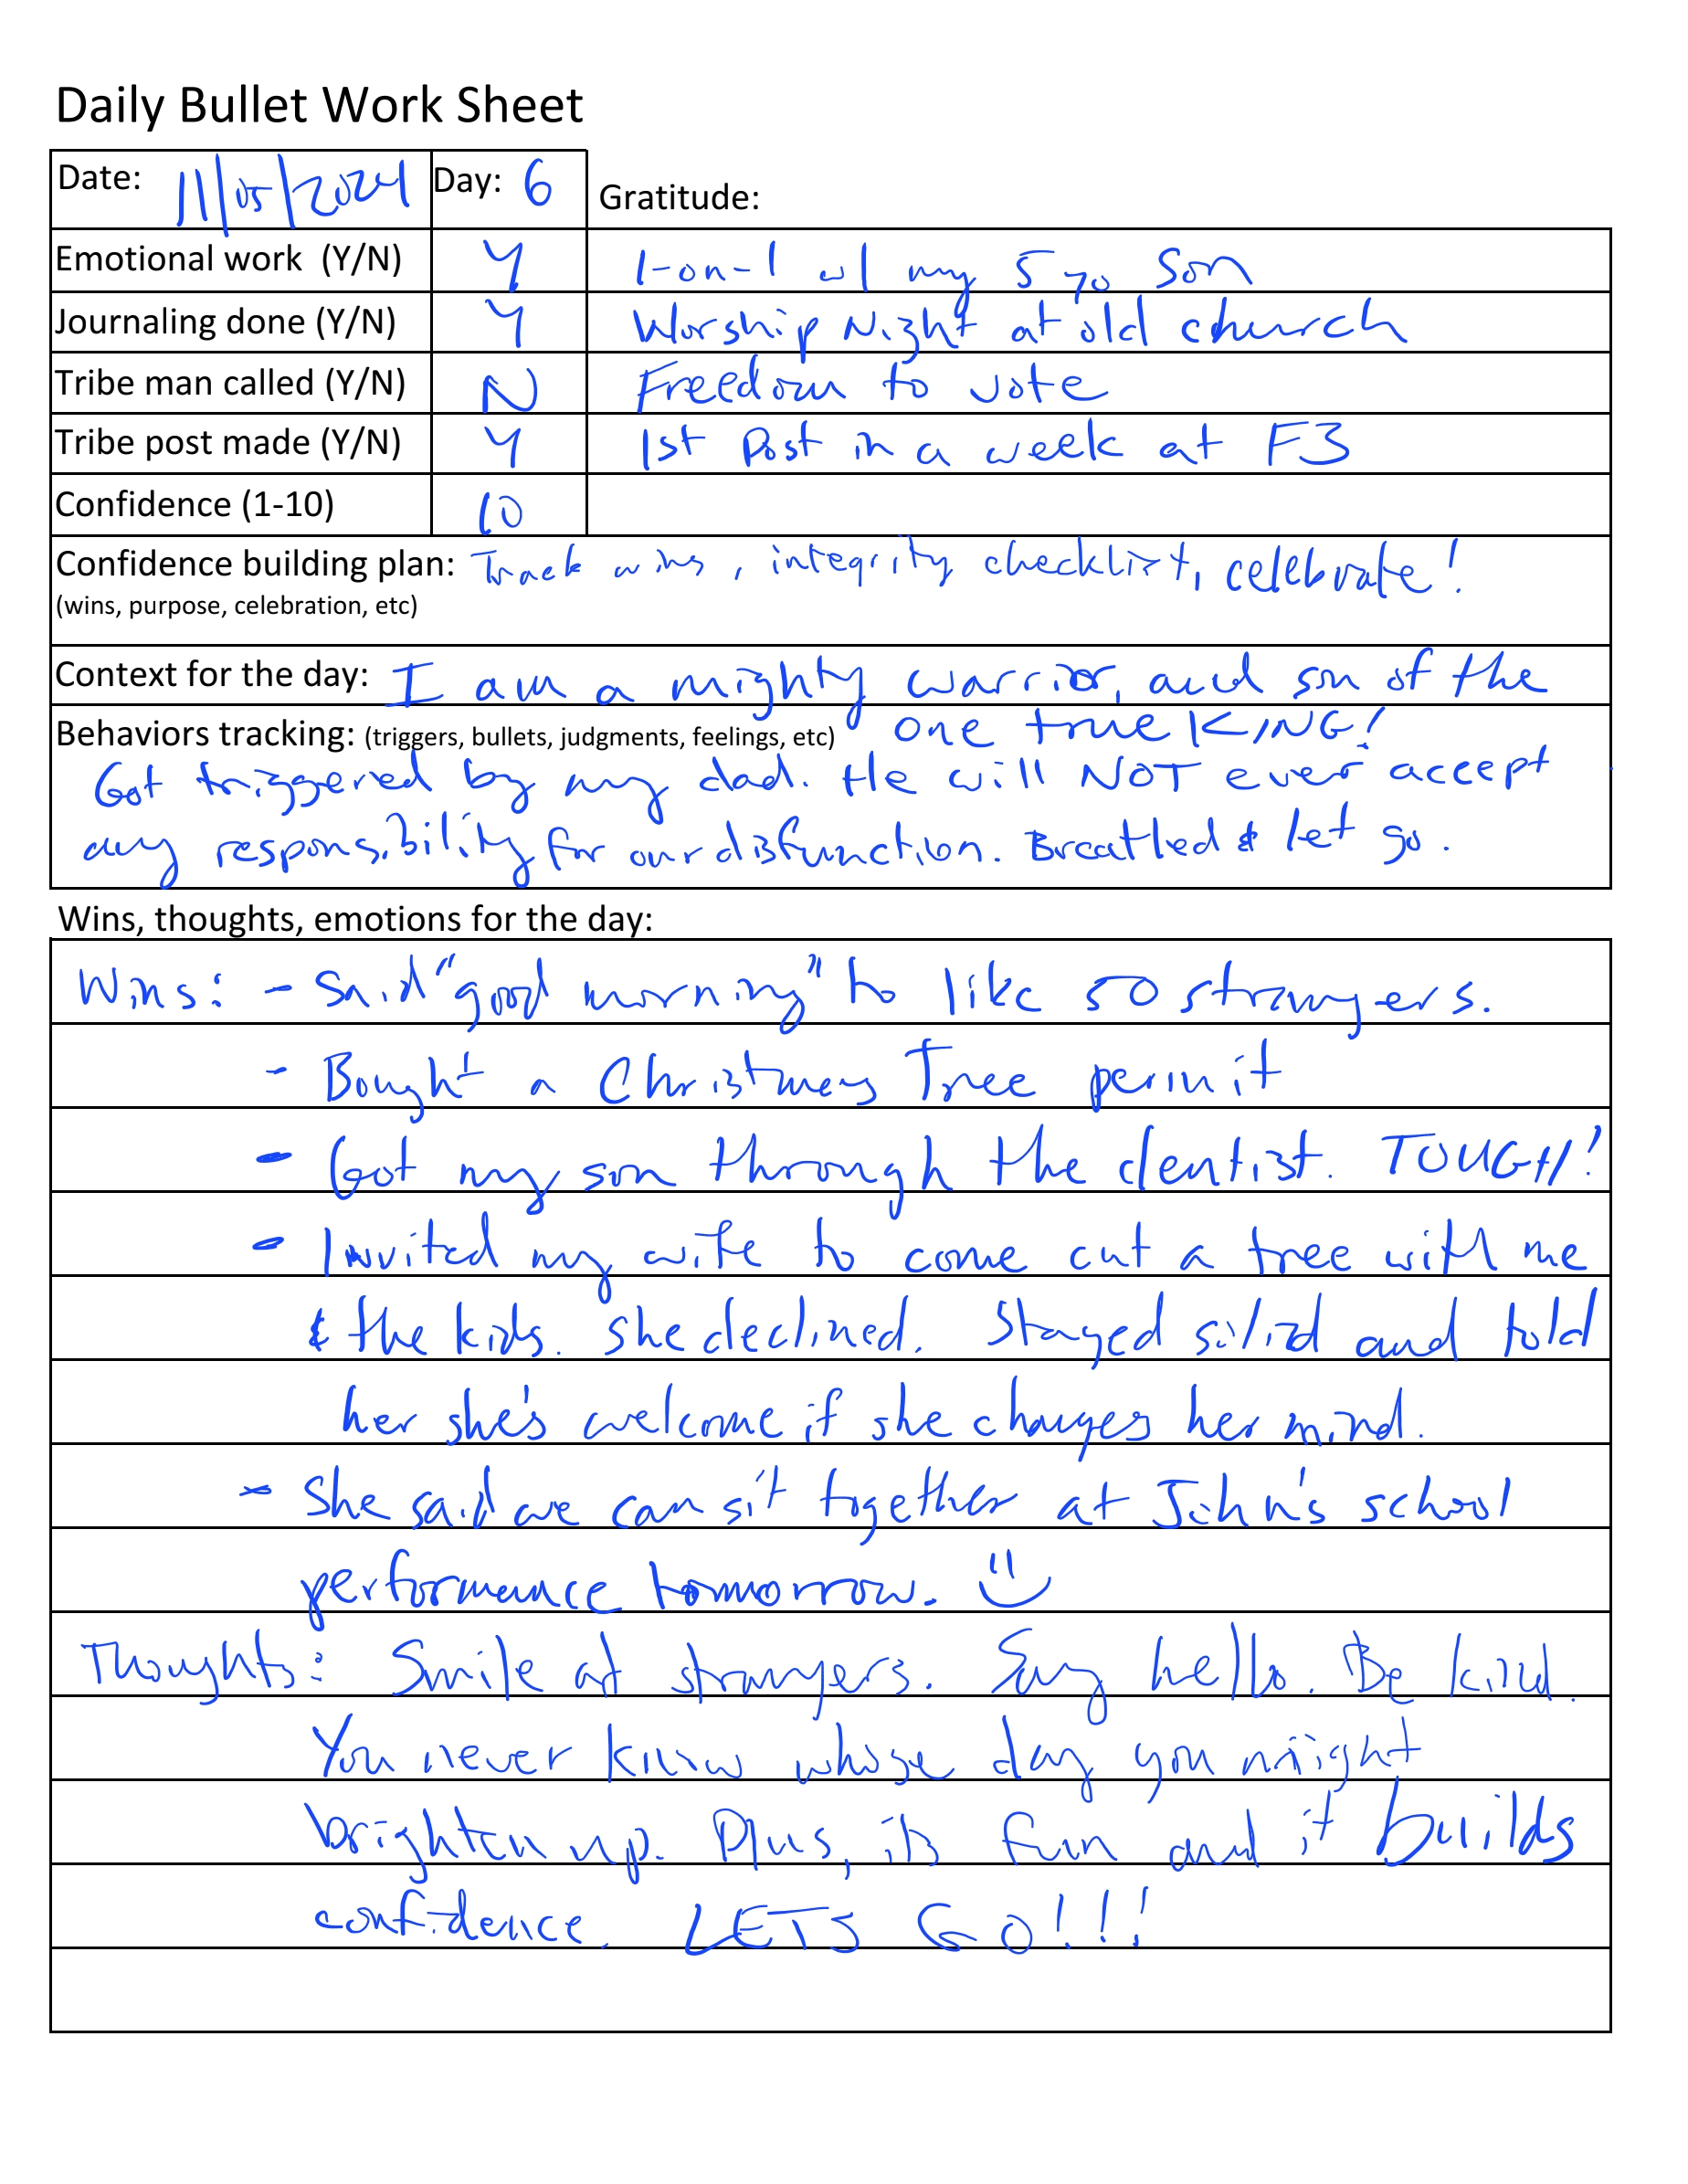 Daily Bullet Work Sheet
Date: 11/05/2024 Day: 6 Gratitude:
Emotional work (Y/N) Y 1-on-1 w/ my 5 yo Son
Journaling done (Y/N) Y Worship Night at old church
Tribe man called (Y/N) N Freedom to vote
Tribe post made (Y/N) Y 1st Post in a week at F3
Confidence (1-10) 10
Confidence building plan: Track wins, integrity checklist, celebrate!
(wins, purpose, celebration, etc)
Context for the day: I am a mighty warrior, and son of the
one true KING!
Behaviors tracking: (triggers, bullets, judgments, feelings, etc)
Got triggered by my dad. He will NOT ever accept
any responsibility for our disfunction. Breathed & let go.
Wins, thoughts, emotions for the day:
Wins: - Said "good morning" to like 50 strangers.
- Bought a Christmas Tree permit
- Got my son through the dentist. TOUGH!
- Invited my wife to come cut a tree with me
& the kids. She declined. Stayed solid and told
her she's welcome if she changes her mind.
- She said we can sit together at John's school
performance tomorrow. :)
Thoughts: Smile at strangers. Say hello. Be kind.
You never know whose day you might
brighten up. Plus, it's fun and it builds
confidence. LETS GO!!!